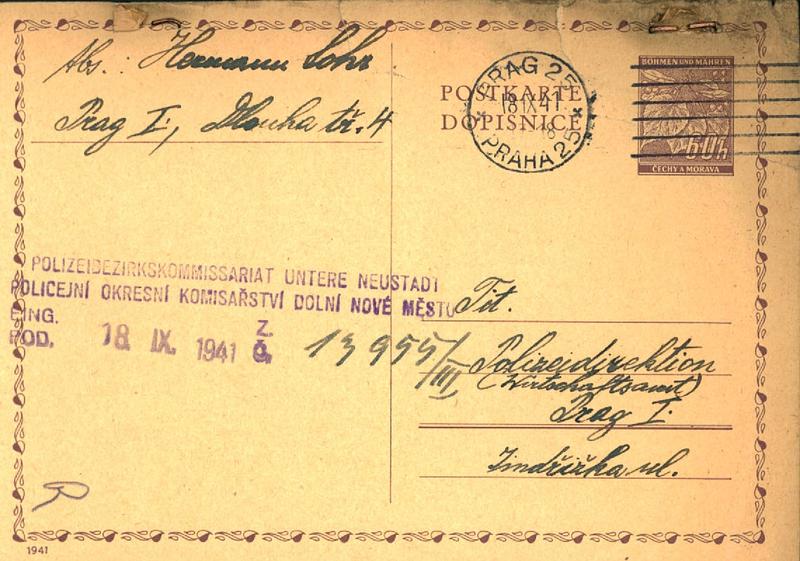 Abs.: Hermann Lohr
Prag I, Dlouha tř. 4
POSTKARTE
DOPISNICE
PRAG 25
18.IX.41
18
PRAHA 25
BÖHMEN UND MÄHREN
60h
ČECHY A MORAVA
POLIZEIBEZIRKSKOMMISSARIAT UNTERE NEUSTADT
POLICEJNÍ OKRESNÍ KOMISAŘSTVÍ DOLNÍ NOVÉ MĚSTO
EING.
POD. 18. IX. 1941 Z. Č. 13955/III
Tit.
Polizeidirektion
(Wirtschaftsamt)
Prag I.
Jindřišká ul.
1941